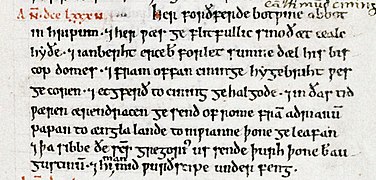 cining
AN̄. dcc lxxxu. Her forðferde botwine abbot
in hripum. ⁊ her wæs geflitfullic sinoð æt cealc
hyðe. ⁊ ianberht erceb̄ forlet sumne dæl his bis
copdomes. ⁊ fram offan cininge hygebriht wes
gecoren. ⁊ ecgferð to cining gehalgode. ⁊ in ðas tid
wæren ærendracen gesend of rome fram adrianū
papan to ænglalande to niwianne þone geleafan
⁊ þa sibbe ðe scs̄ gregoriꝰ us sende þurh þone b̄ au
gustinū. ⁊ hi man mid wurðscipe underfeng.